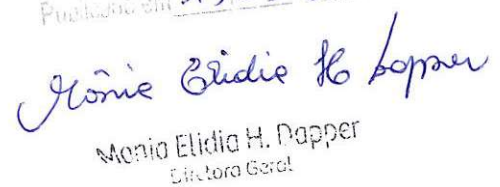 Publicado em
Mônia Elidia H Dapper
Monia Elidia H. Dapper
Diretora Geral